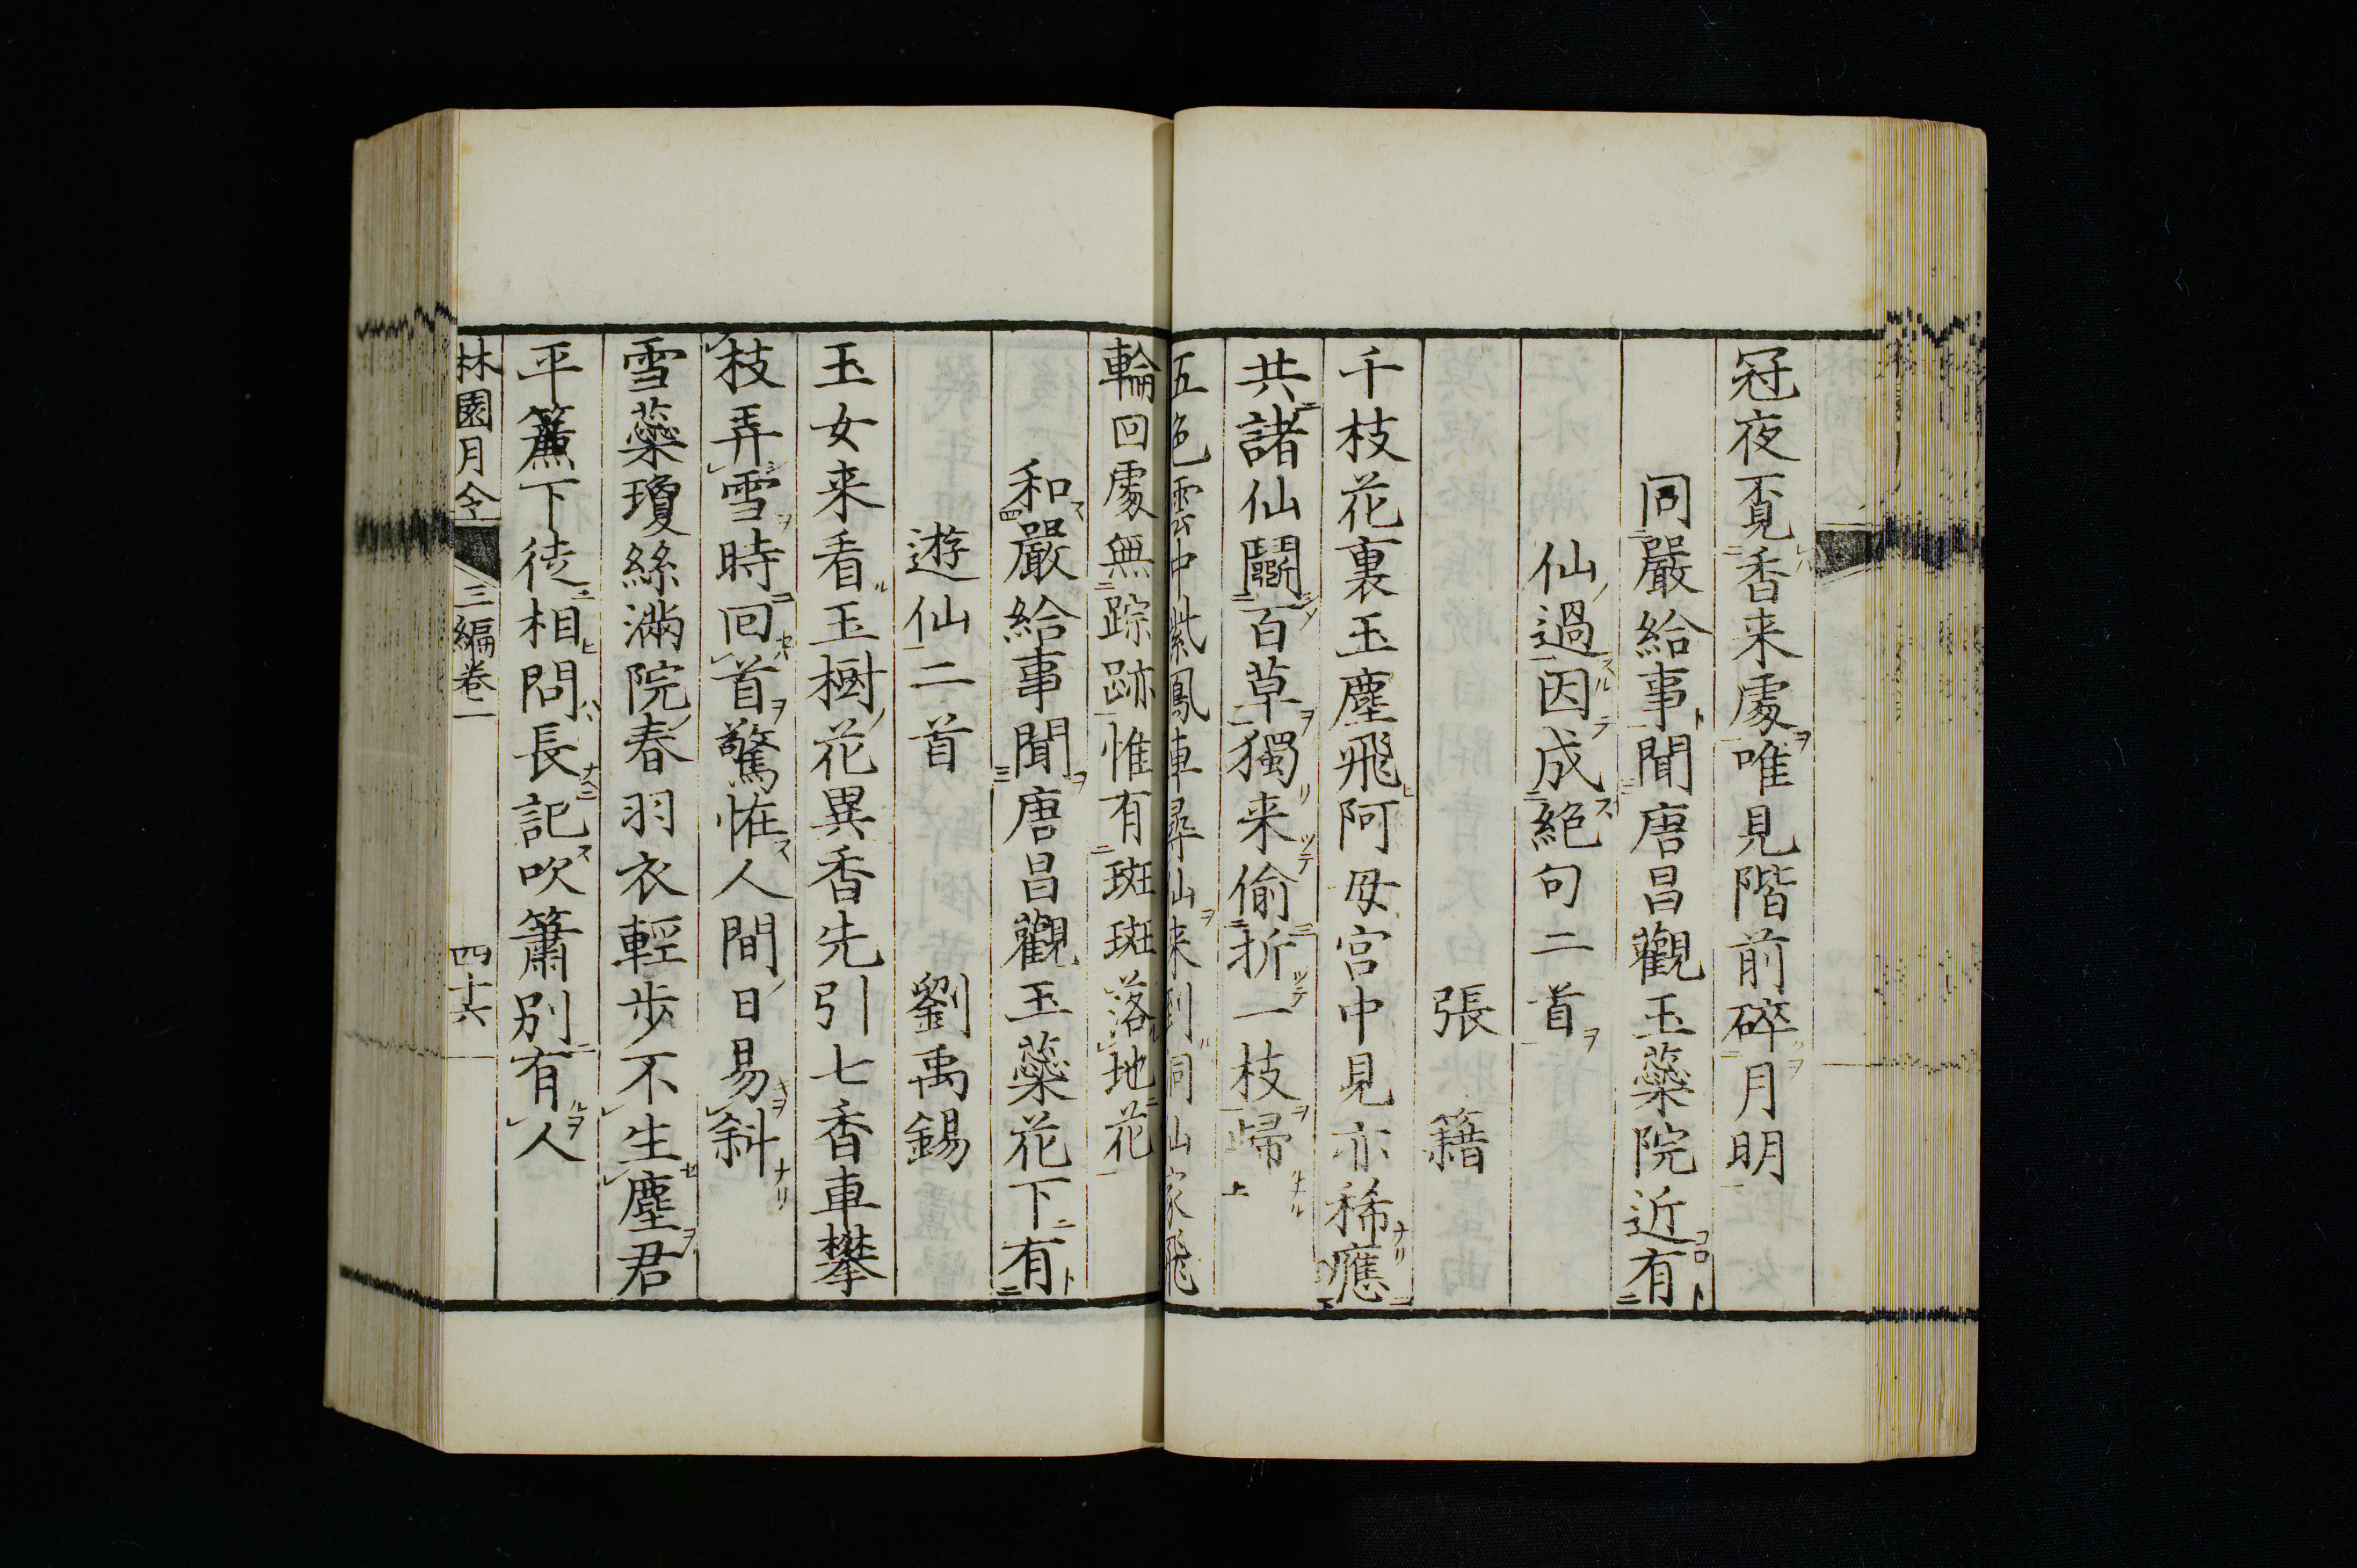 冠夜覔香来處唯見階前碎月明
同嚴給事聞唐昌觀玉蘂院近有
仙過因成絕句二首
張籍
千枝花裏玉塵飛阿母宮中見亦稀應
共諸仙鬭百草獨来偷折一枝歸
五色雲中紫鳳車尋仙来到洞仙家飛
輪回處無踪跡惟有斑斑落地花
和嚴給事聞唐昌觀玉蘂花下有
遊仙二首　劉禹錫
玉女来看玉樹花異香先引七香車攀
枝弄雪時回首驚恠人間日易斜
雪蘂瓊絲滿院春羽衣輕步不生塵君
平簾下徒相問長記吹簫別有人
林園月令　三編卷一　四十六